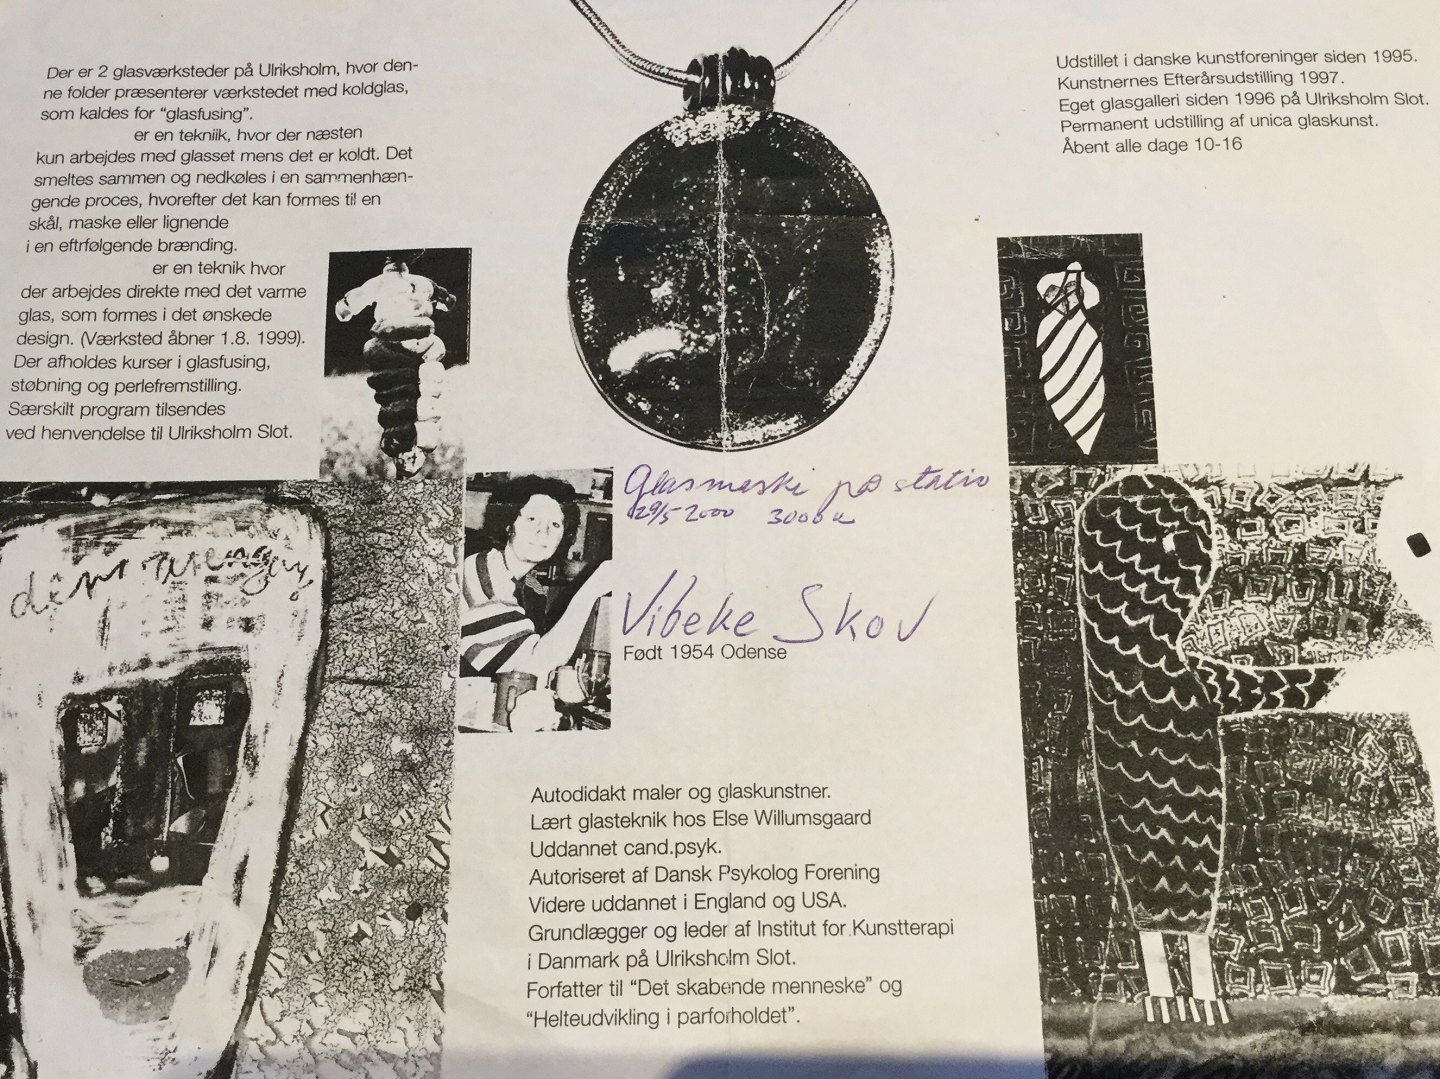 Der er 2 glasværksteder på Ulriksholm, hvor den-
ne folder præsenterer værkstedet med koldglas,
som kaldes for “glasfusing”.
er en tekniik, hvor der næsten
kun arbejdes med glasset mens det er koldt. Det
smeltes sammen og nedkøles i en sammenhæn-
gende proces, hvorefter det kan formes til en
skål, maske eller lignende
i en eftrfølgende brænding.
er en teknik hvor
der arbejdes direkte med det varme
glas, som formes i det ønskede
design. (Værksted åbner 1.8. 1999).
Der afholdes kurser i glasfusing,
støbning og perlefremstilling.
Særskilt program tilsendes
ved henvendelse til Ulriksholm Slot.
Udstillet i danske kunstforeninger siden 1995.
Kunstnernes Efterårsudstilling 1997.
Eget glasgalleri siden 1996 på Ulriksholm Slot.
Permanent udstilling af unica glaskunst.
Åbent alle dage 10-16
Glasmaske på stativ
29/5 2000 3000
Vibeke Skov
Født 1954 Odense
Autodidakt maler og glaskunstner.
Lært glasteknik hos Else Willumsgaard
Uddannet cand.psyk.
Autoriseret af Dansk Psykolog Forening
Videre uddannet i England og USA.
Grundlægger og leder af Institut for Kunstterapi
i Danmark på Ulriksholm Slot.
Forfatter til “Det skabende menneske” og
“Helteudvikling i parforholdet”.